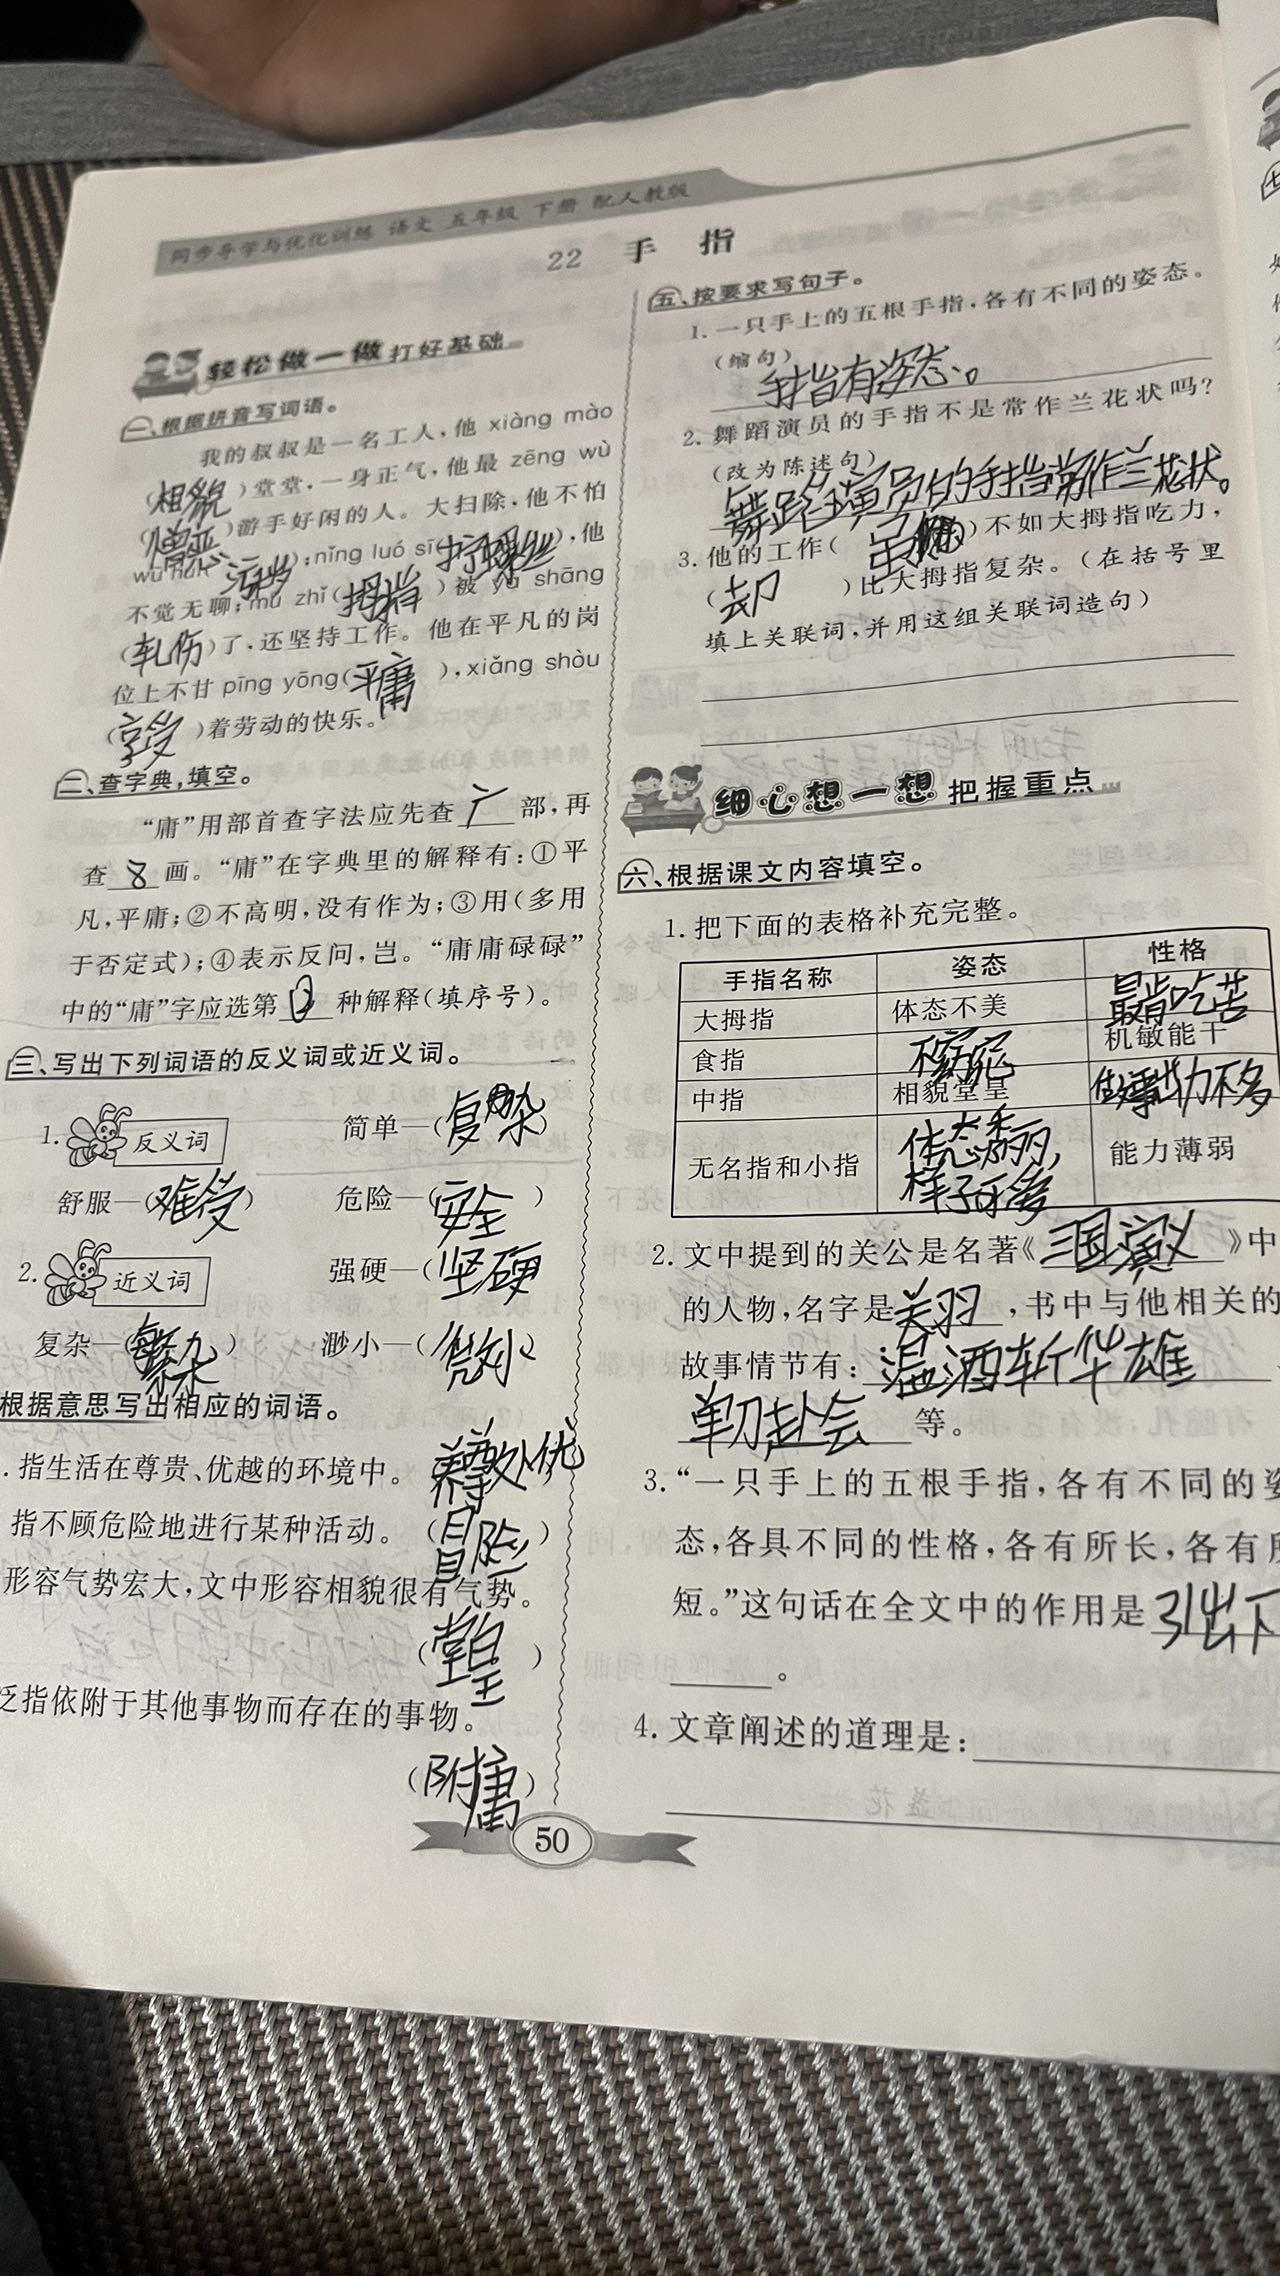 同步导学与优化训练 语文 五年级 下册 配人教版
22 手 指
轻松做一做 打好基础
一、根据拼音写词语。
我的叔叔是一名工人,他 xiàng mào
(相貌)堂堂,一身正气,他最 zēng wù
(憎恶)游手好闲的人。大扫除,他不怕
wū huì 污秽);nǐng luó sī(拧螺丝),他
不觉无聊;mǔ zhǐ(拇指)被 yà shāng
(轧伤)了,还坚持工作。他在平凡的岗
位上不甘 pīng yōng(平庸),xiǎng shòu
(享受)着劳动的快乐。
二、查字典,填空。
“庸”用部首查字法应先查广部,再
查8画。“庸”在字典里的解释有:①平
凡,平庸;②不高明,没有作为;③用(多用
于否定式);④表示反问,岂。“庸庸碌碌”
中的“庸”字应选第②种解释(填序号)。
三、写出下列词语的反义词或近义词。
1. 反义词 简单—(复杂)
舒服—(难受) 危险—(安全)
2. 近义词 强硬—(坚硬
复杂—(繁杂) 渺小—(微小
根据意思写出相应的词语。
. 指生活在尊贵、优越的环境中。养尊处优
指不顾危险地进行某种活动。(冒险)
形容气势宏大,文中形容相貌很有气势。
(堂皇)
泛指依附于其他事物而存在的事物。
(附庸)
50
五、按要求写句子。
1. 一只手上的五根手指,各有不同的姿态。
(缩句)
手指有姿态。
2. 舞蹈演员的手指不是常作兰花状吗?
(改为陈述句)
舞蹈演员的手指常作兰花状。
3. 他的工作(虽)不如大拇指吃力,
(却)比大拇指复杂。(在括号里
填上关联词,并用这组关联词造句)
细心想一想 把握重点
六、根据课文内容填空。
1. 把下面的表格补充完整。
手指名称 姿态 性格
大拇指 体态不美 最肯吃苦
食指 不窈窕 机敏能干
中指 相貌堂皇 做事出力不多
无名指和小指 体态秀丽, 能力薄弱
样子可爱
2. 文中提到的关公是名著《三国演义》中
的人物,名字是关羽,书中与他相关的
故事情节有:温酒斩华雄
单刀赴会等。
3. “一只手上的五根手指,各有不同的姿
态,各具不同的性格,各有所长,各有所
短。”这句话在全文中的作用是引出下
。
4. 文章阐述的道理是: